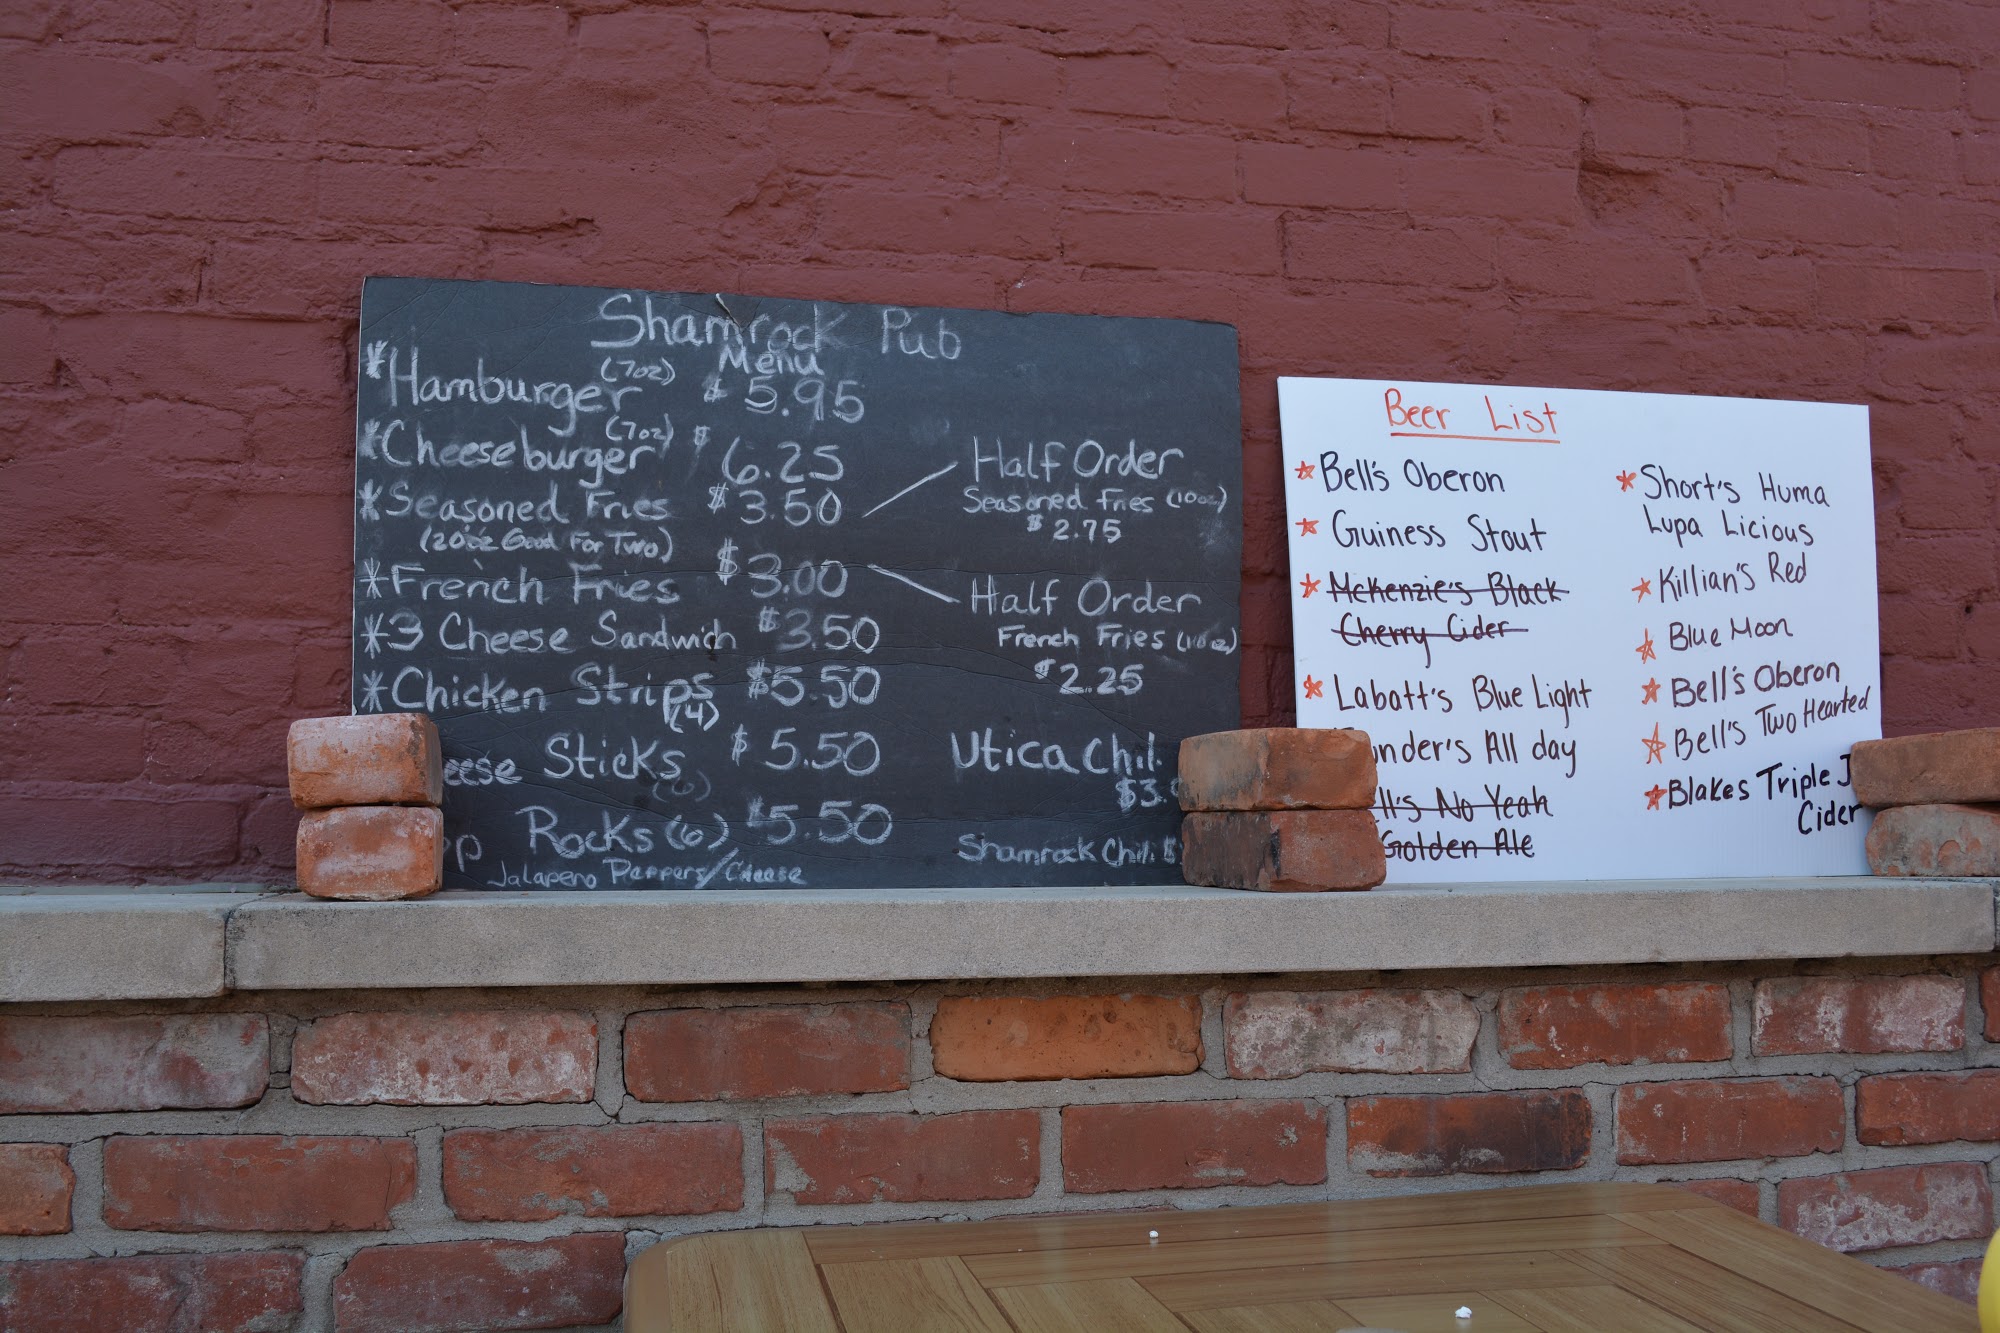 Shamrock Pub
Menu
*Hamburger (7oz) $5.95
*Cheeseburger (7oz) $6.25
*Seasoned Fries $3.50
(20oz Good For Two)
*French Fries $3.00
*3 Cheese Sandwich $3.50
*Chicken Strips (4) $5.50
eese Sticks (6) $5.50
Rocks (6) $5.50
Jalapeno Peppers/Cheese
Half Order
Seasoned Fries (10oz)
$2.75
Half Order
French Fries (10oz)
$2.25
Utica Chil
$3.
Shamrock Chili $
Beer List
Bell's Oberon
Guiness Stout
McKenzie's Black
Cherry Cider
Labatt's Blue Light
nder's All day
ll's No Yeah
Golden Ale
Short's Huma
Lupa Licious
Killian's Red
Blue Moon
Bell's Oberon
Bell's Two Hearted
Blakes Triple J
Cider